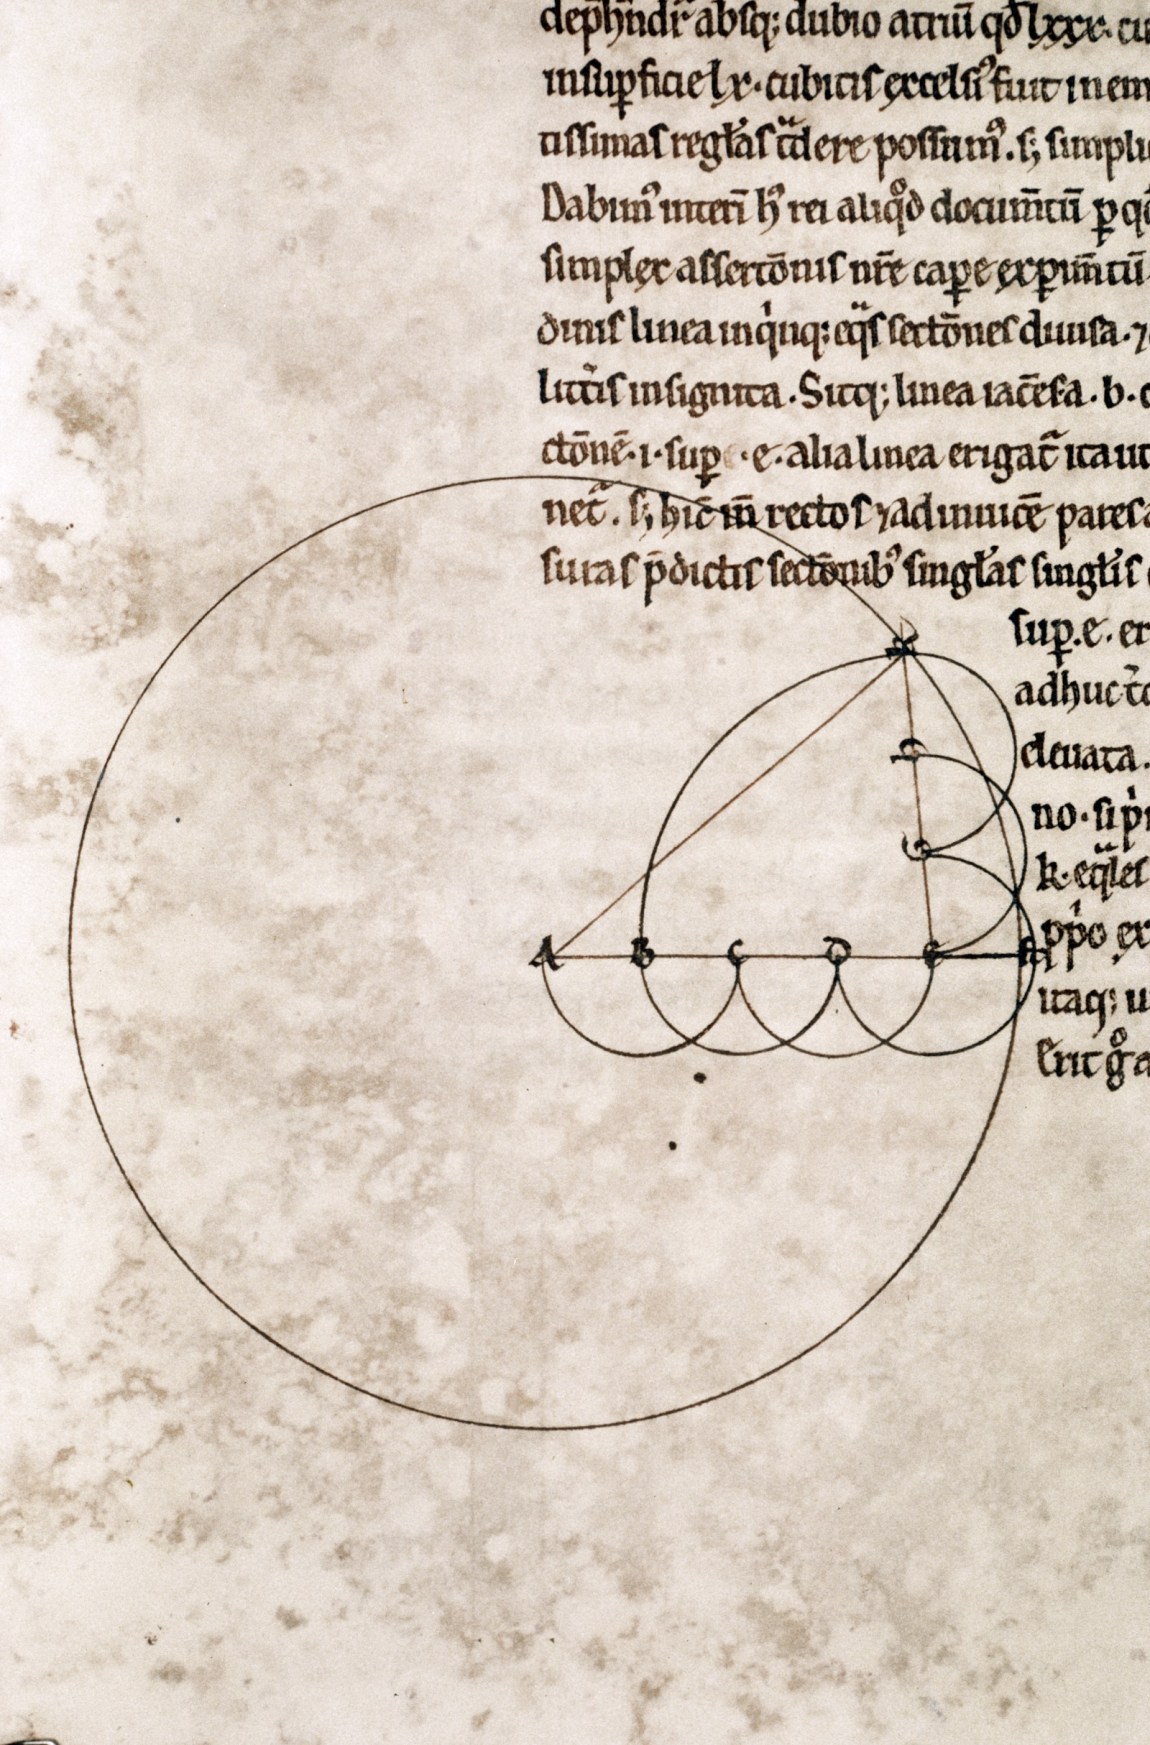 dep̄hndr̄ absq; dubio atriū qđ lxxx. cu
in suꝑficie lx. cubitis excelsiꝰ fuit in em
tissimas regłas tdere possumꝰ. s; simpli
Dabimꝰ interī hꝰ rei aliqod documn̄tū ꝑ qđ
simplex assertōnis nr̄e caꝑe exꝑim̄tū
dinis linea in qinq; eq̈s sectōnes diuisa. ⁊
littis insignita. Sitq; linea iacēs a. b. c
ctōne. i. suꝑ. e. alia linea erigat̄ ita ut
net̄. s; hic m̄ rectos ⁊ adinuicē pares
suras p̄dictis sectōnibꝰ singłas singłis
suꝑ. e. er
adhuc t
eleuata.
no. si pi
k. eq̈les
ppo ex
itaq; u
Erit go a
K
G
A B C D E